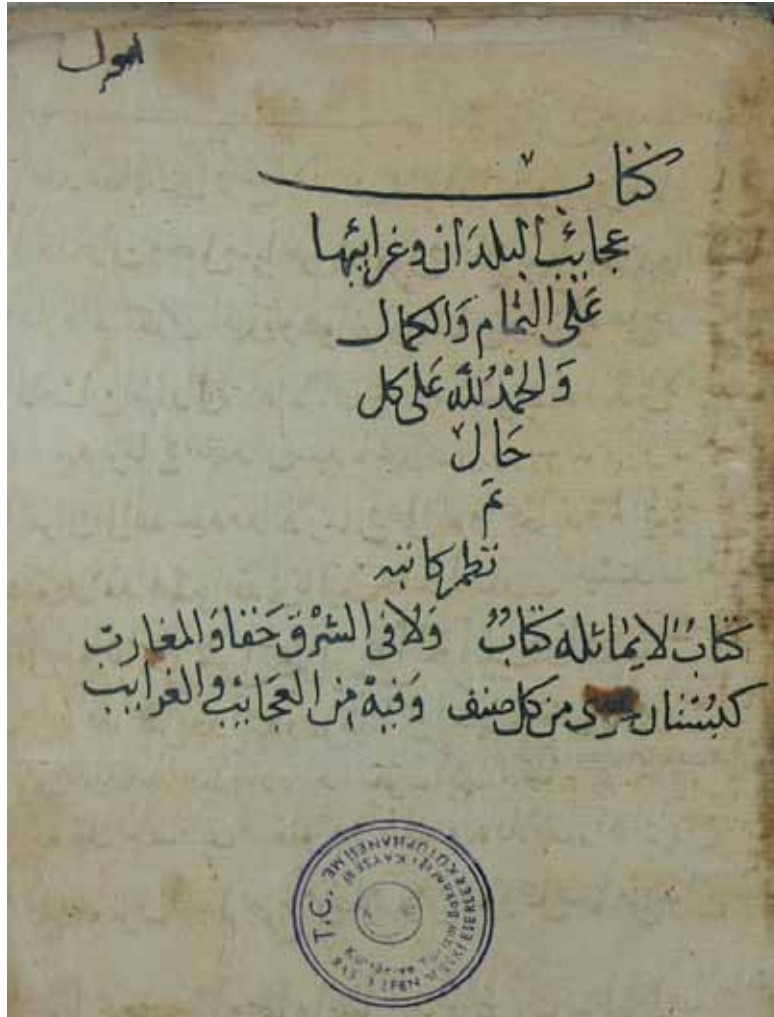 كتاب
عجائب البلدان وغرائبها
على التمام والكمال
والحمد لله على كل
حال
تم
نظم كاتبه
كتاب لا يماثله كتاب ولا في الشرق حقا والمغارب
كبستان من كل صنف وفيه من العجايب والغرايب
T.C.
KAYSERİ
RAŞİT EFENDİ ESKİ ESERLER KÜTÜPHANESİ